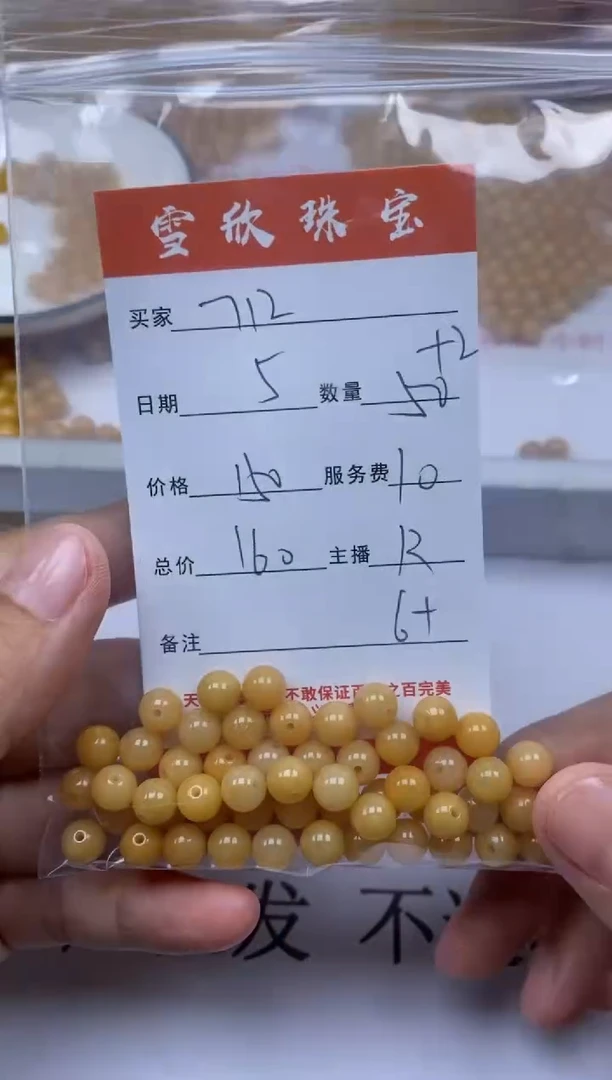 雪欣珠宝
买家 712
+2
日期 5 数量 50
价格 150 服务费 10
总价 160 主播 R
6+
备注
天 不敢保证百 之百完美
发 不